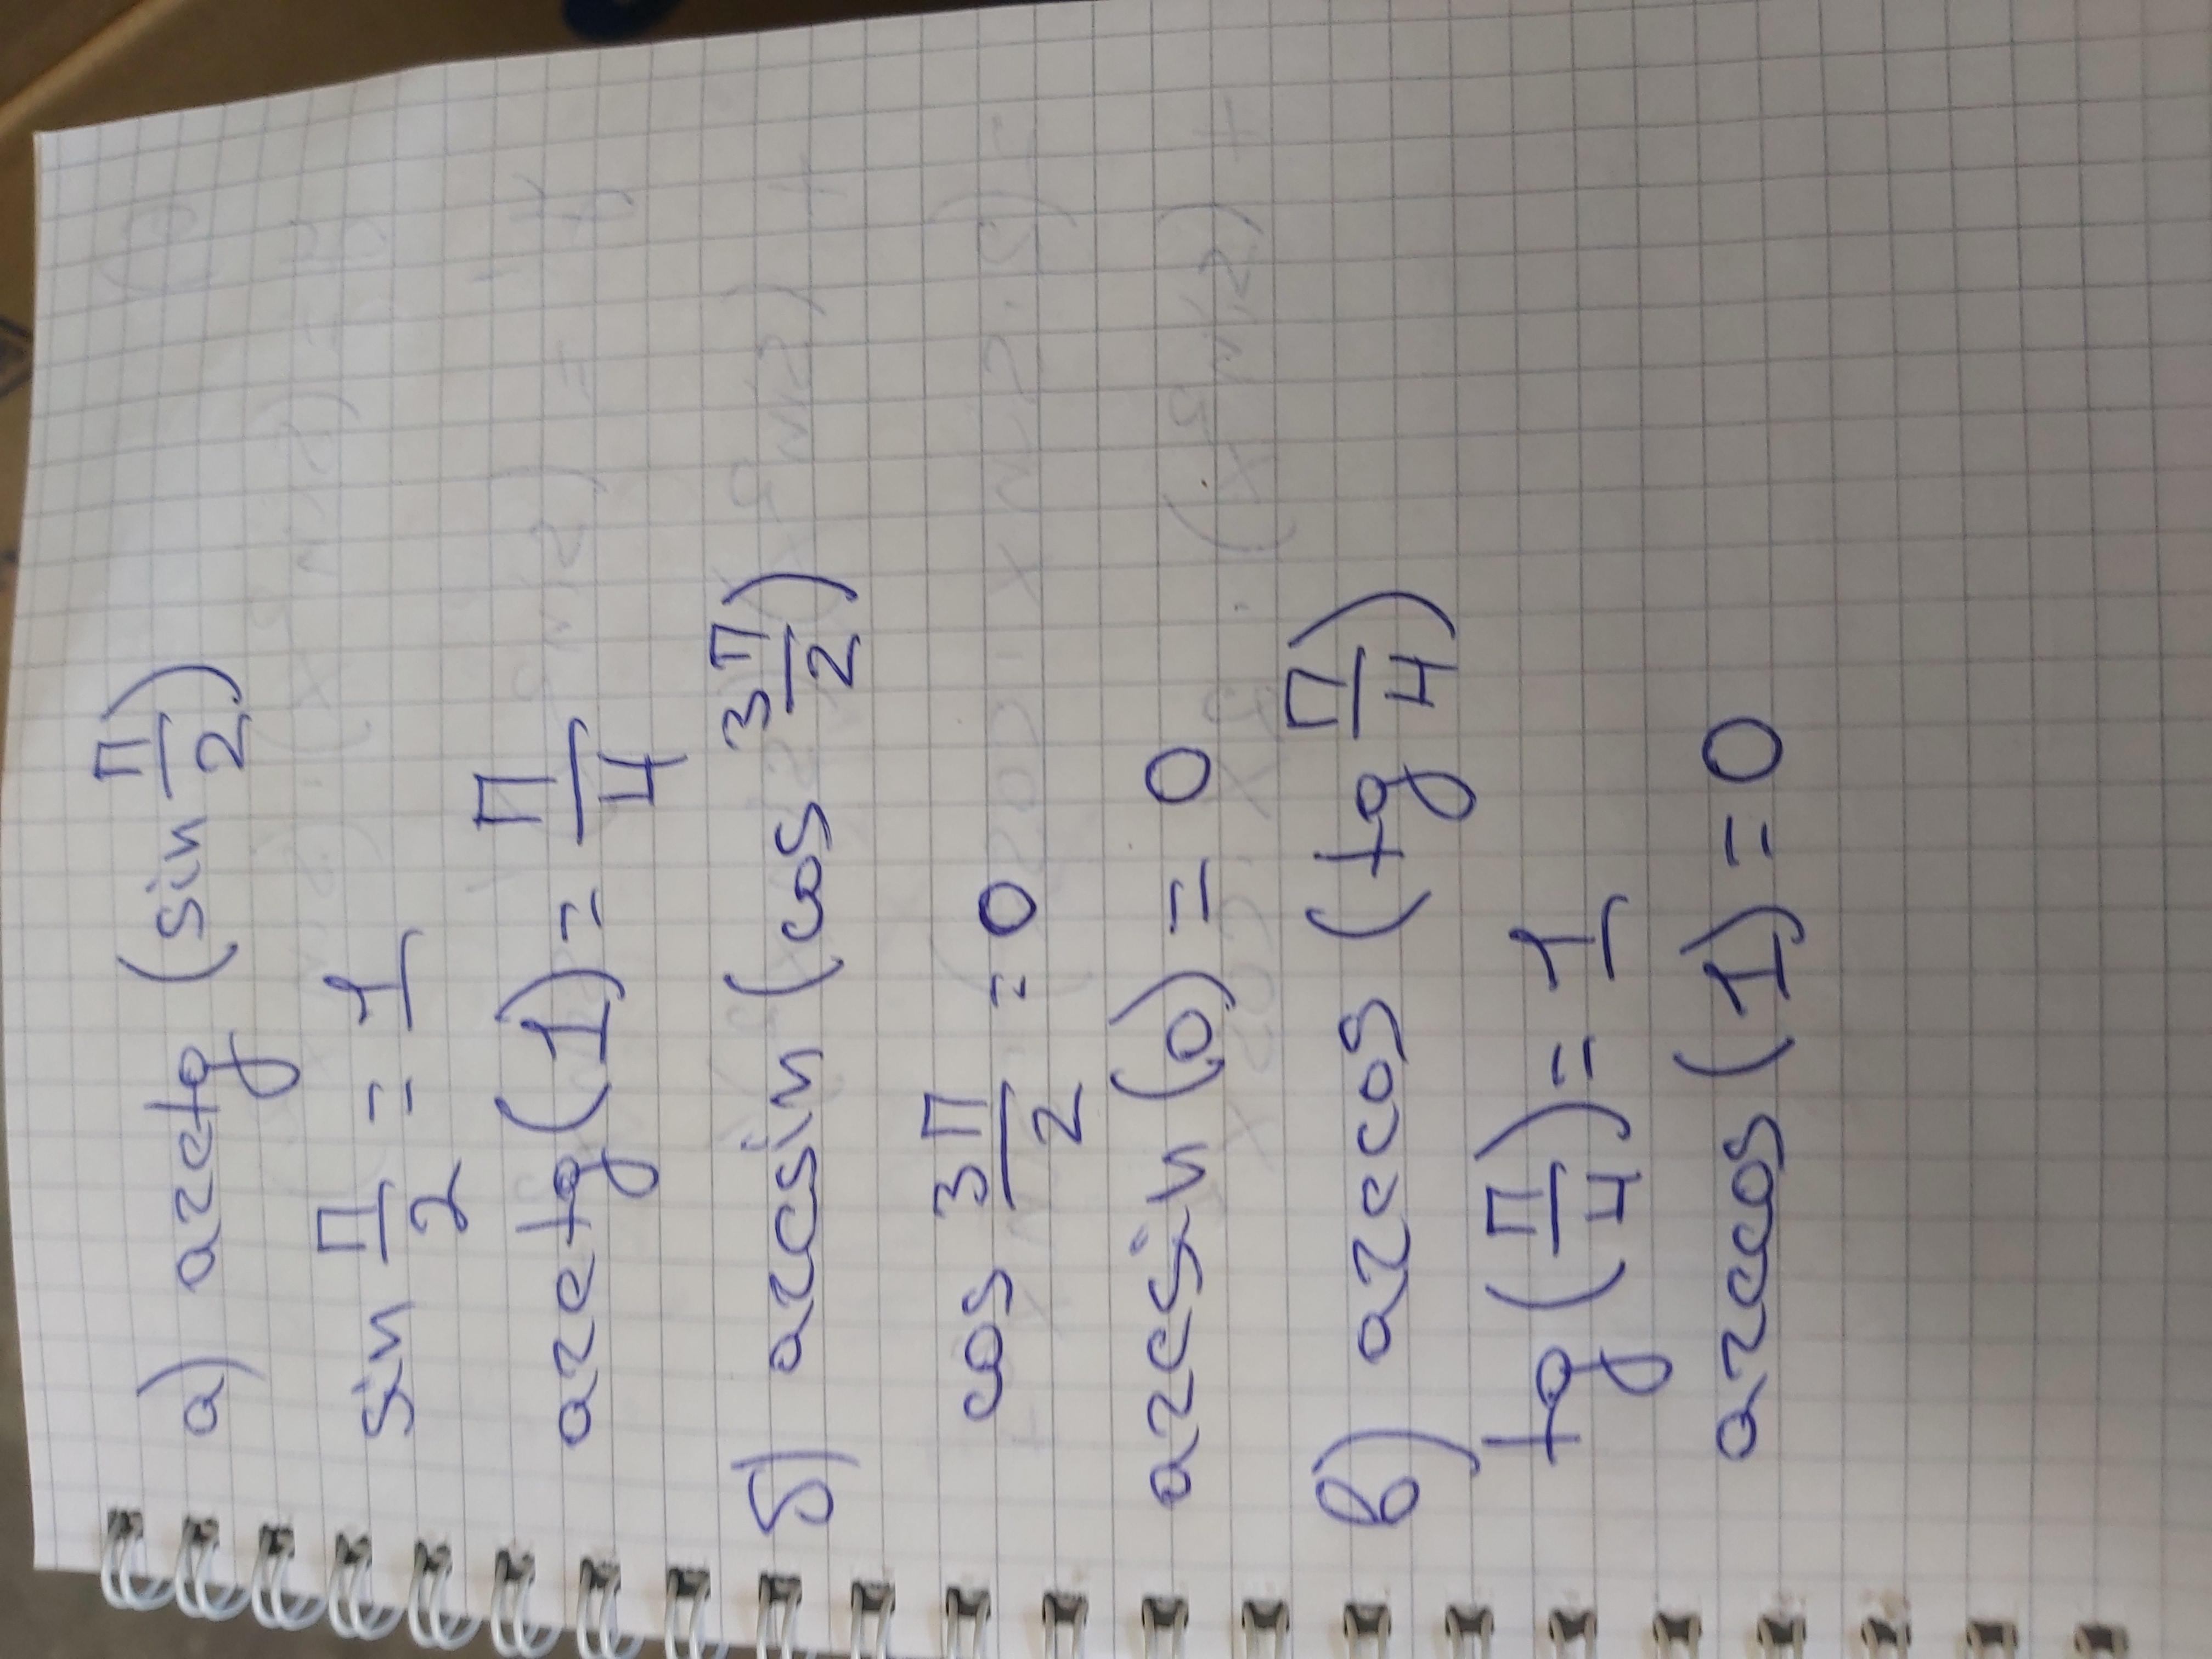 а) arctg (sin π/2)
sin π/2 = 1
arctg (1) = π/4
б) arcsin (cos 3π/2)
cos 3π/2 = 0
arcsin (0) = 0
в) arccos (tg π/4)
tg (π/4) = 1
arccos (1) = 0